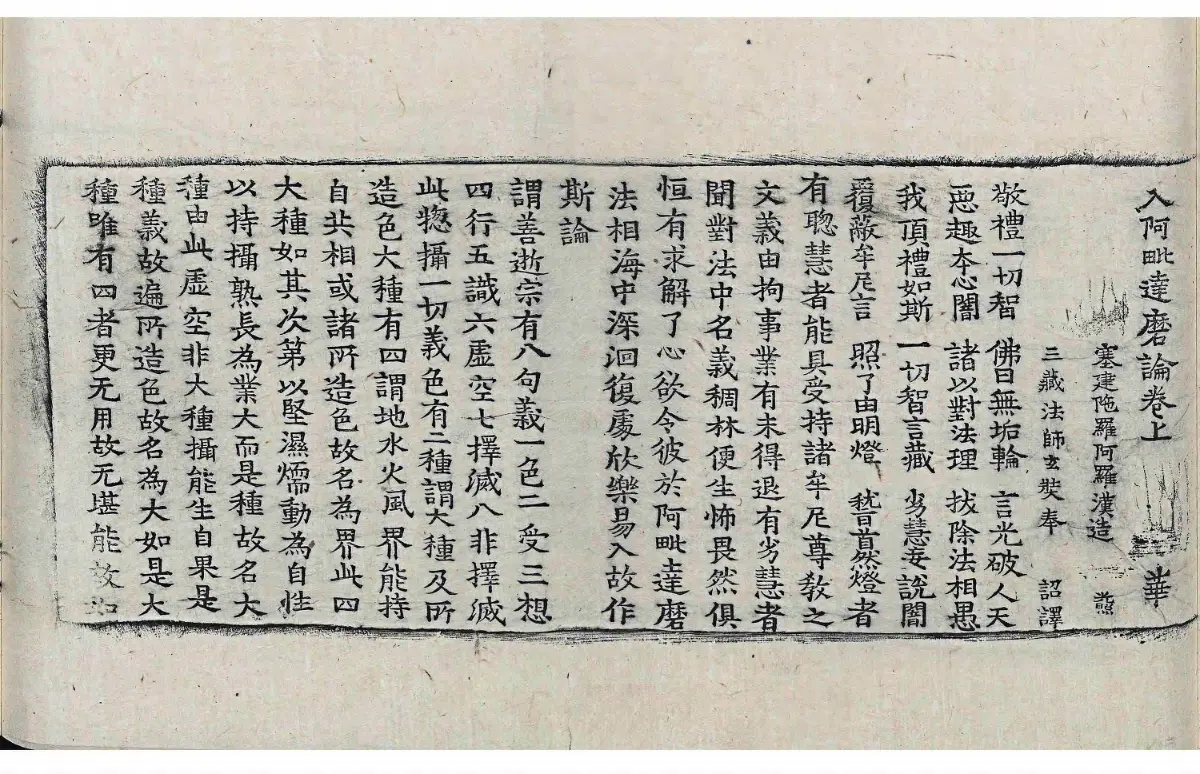 入阿毗達磨論卷上 華
塞建陁羅阿羅漢造
三藏法師玄奘奉 詔譯
敬禮一切智 佛日無垢輪 言光破人天
惡趣本心闇 諸以對法理 拔除法相愚
我頂禮如斯 一切智言藏 劣慧妄說闇
覆蔽牟尼言 照了由明燈 稽首然燈者
有聰慧者能具受持諸牟尼尊敎之
文義由拘事業有未得退有劣慧者
聞對法中名義稠林便生怖畏然俱
恒有求解了心欲令彼於阿毗達磨
法相海中深洄復處欣樂易入故作
斯論
謂善逝宗有八句義一色二受三想
四行五識六虛空七擇滅八非擇滅
此惣攝一切義色有二種謂大種及所
造色大種有四謂地水火風界能持
自共相或諸所造色故名為界此四
大種如其次第以堅濕煗動為自性
以持攝熟長為業大而是種故名大
種由此虛空非大種攝能生自果是
種義故遍所造色故名為大如是大
種唯有四者更无用故无堪能故如